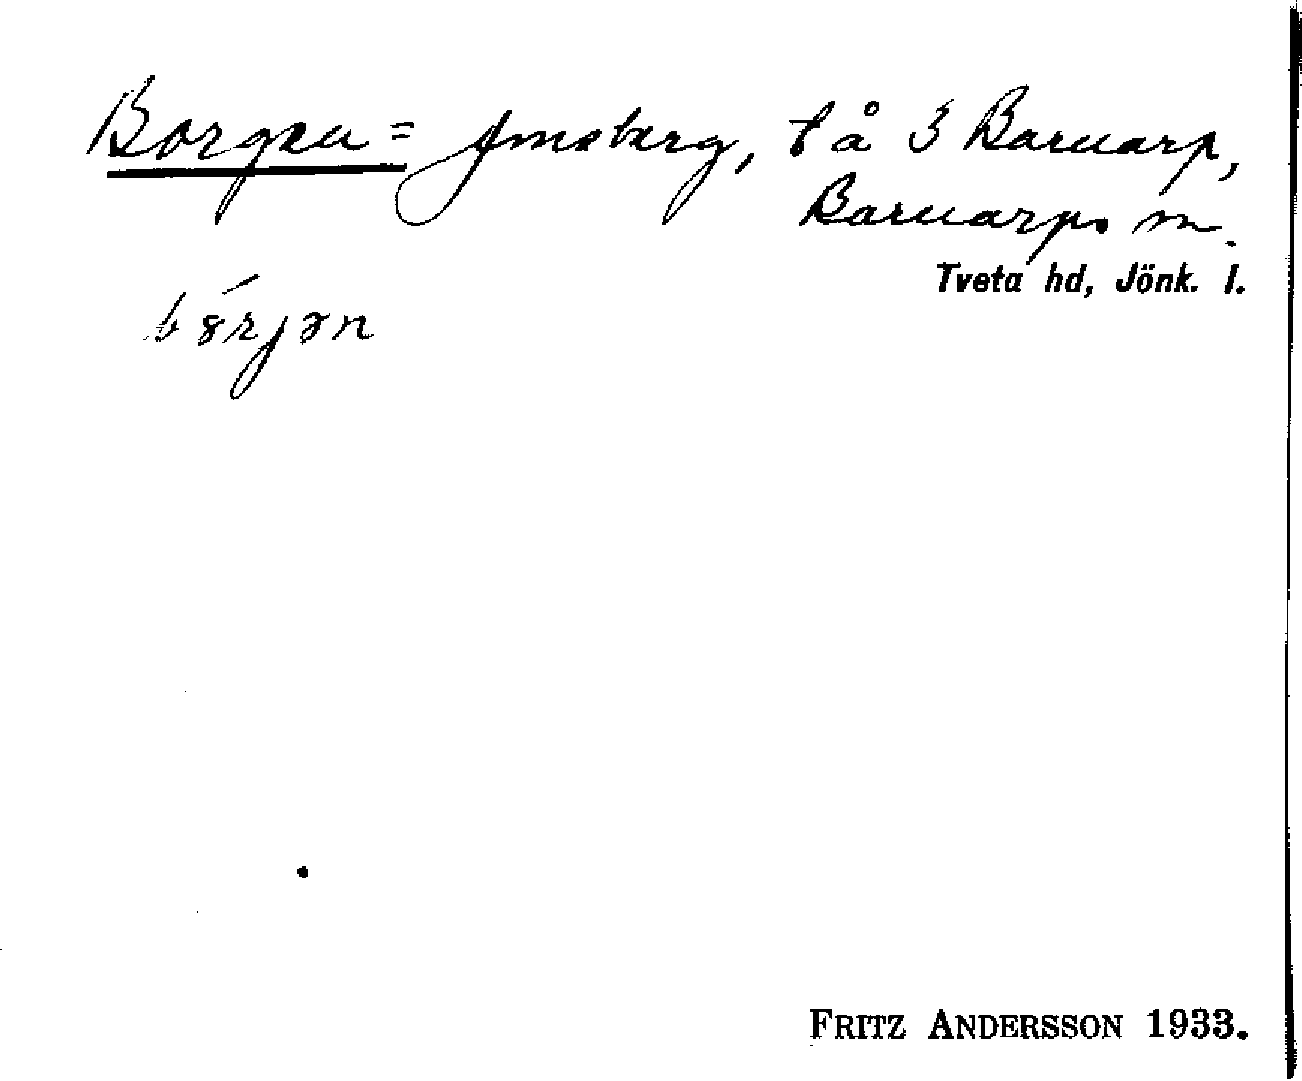 Borgen = Jonsberg, t å 3 Barnarp,
Barnarps sn.
Tveta hd, Jönk. l.
FRITZ ANDERSSON 1933.